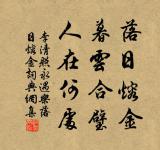 落日熔金
暮雲合璧
人在何處
李清照永遇樂落
日熔金詞典網集